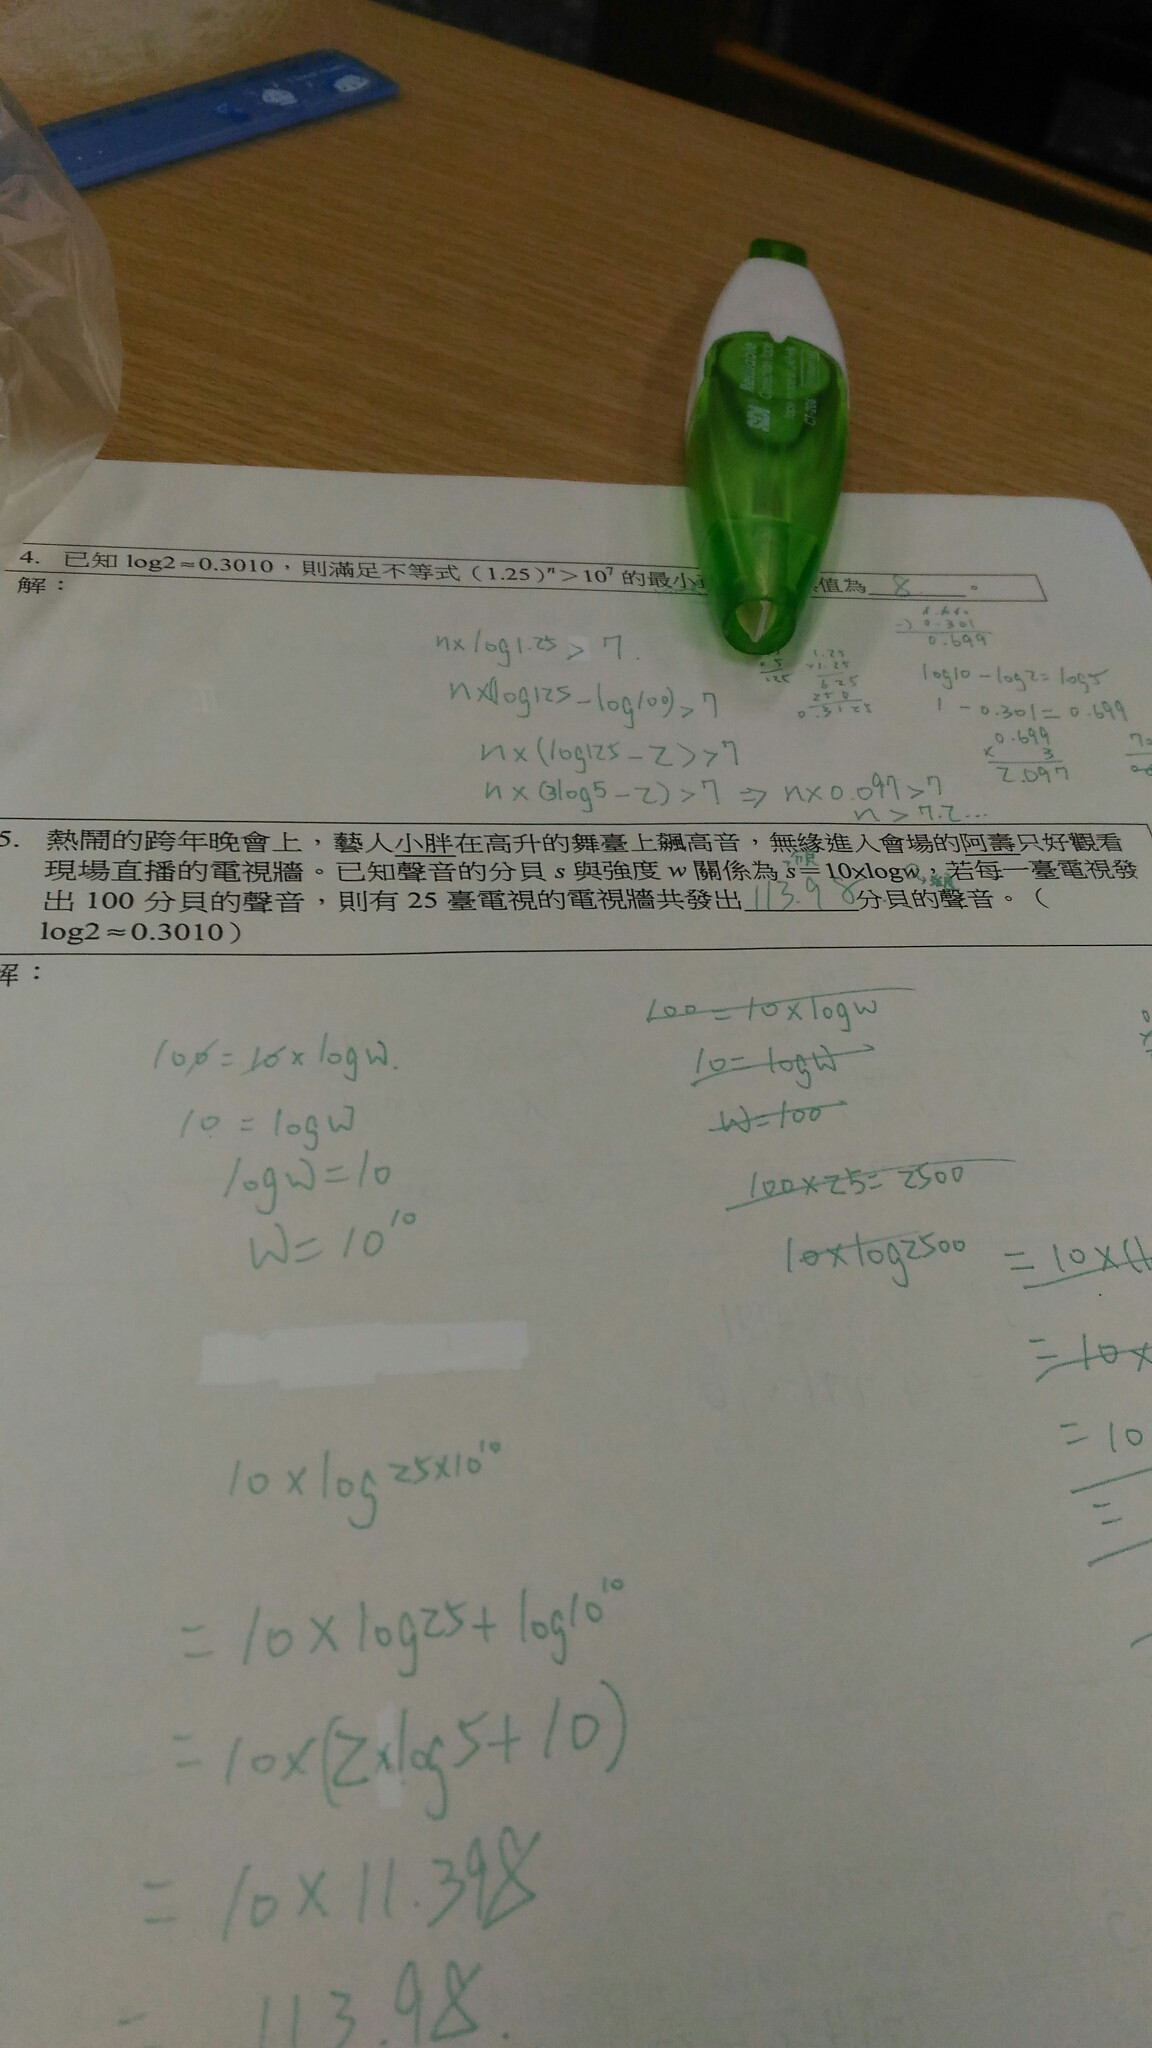 SDI Reliable
CT-204
4. 已知 log2≈0.3010，則滿足不等式（1.25）ⁿ＞10⁷ 的最小 值為 8 。
解：
-) 0.301
0.699
n×log1.25 > 7.
n×(log125-log100)>7
n×(log125-2)>7
n×(3log5-2)>7 ⇒ n×0.097>7
n>72...
1.25
×1.25
625
250
0.3125
log10-log2=log5
1-0.301=0.699
0.699
× 3
2.097
5. 熱鬧的跨年晚會上，藝人小胖在高升的舞臺上飆高音，無緣進入會場的阿壽只好觀看
現場直播的電視牆。已知聲音的分貝 s 與強度 w 關係為 s=10×logw，若每一臺電視發
分貝 強度
出 100 分貝的聲音，則有 25 臺電視的電視牆共發出 113.98 分貝的聲音。（
log2≈0.3010）
解：
100=10×logw.
10=logw
logw=10
w=10¹⁰
10×log25×10¹⁰
=10×log25+log10¹⁰
=10×(2×log5+10)
=10×11.398
= 113.98.
100=10×logw
10=logw
w=100
100×25=2500
10×log2500
=10×(1
=10×
=10
=